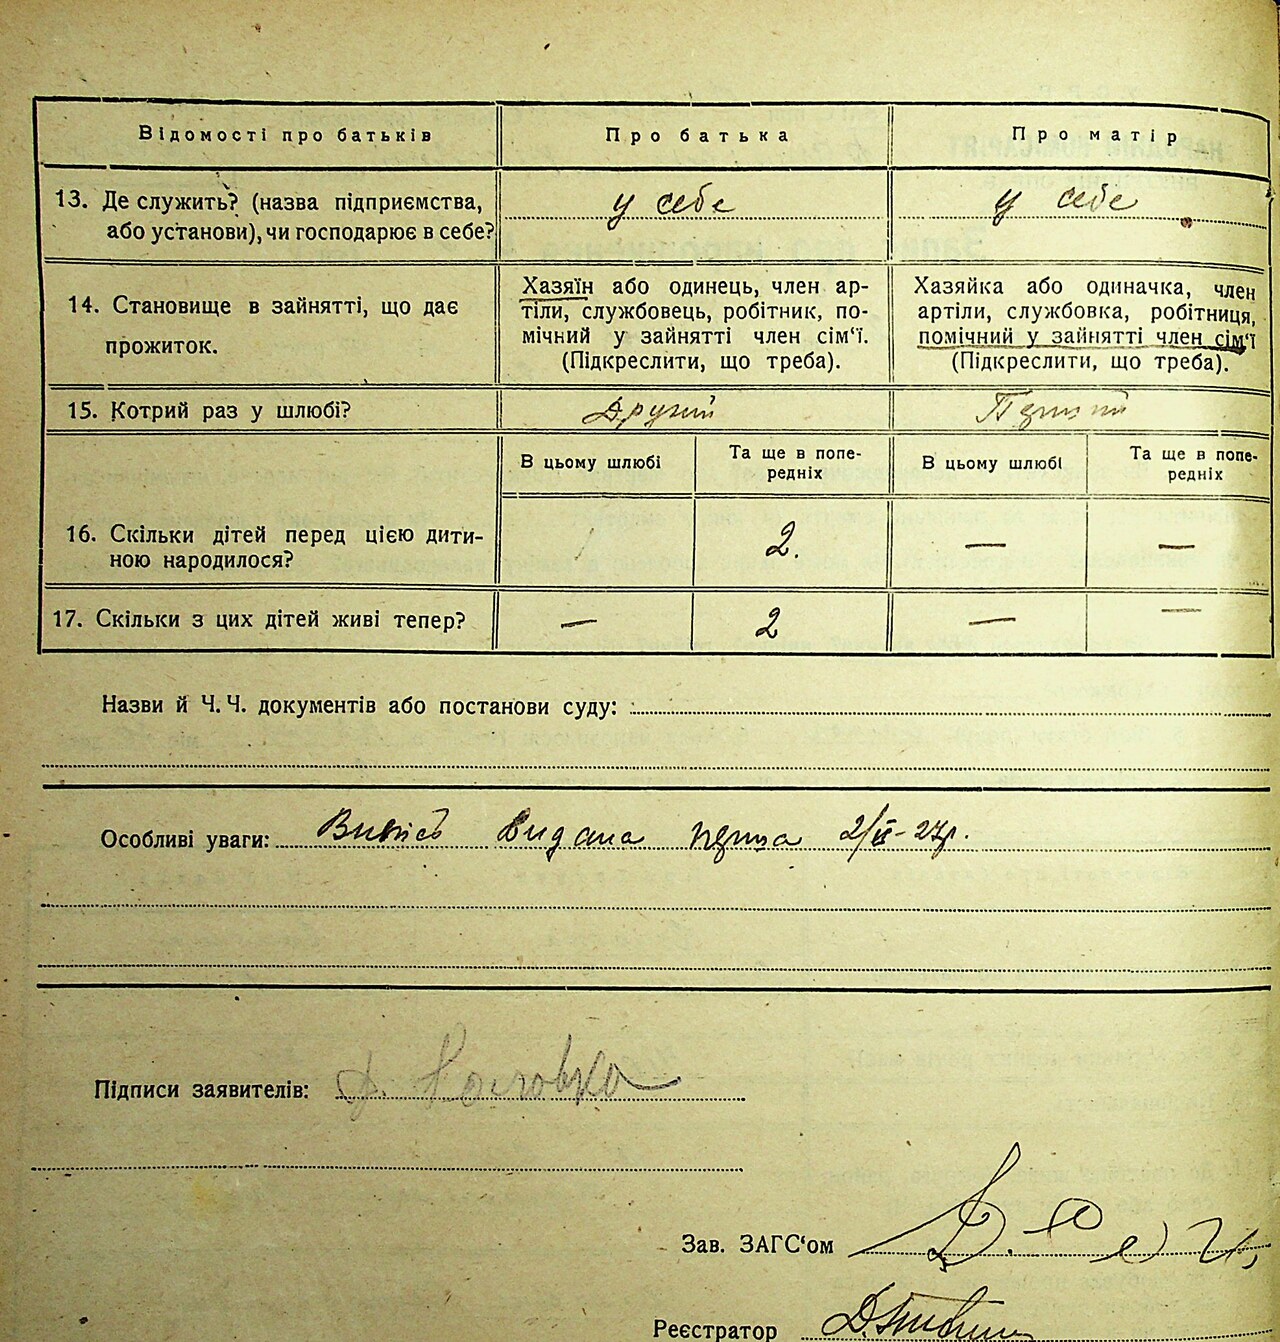 Відомості про батьків
Про батька
Про матір
13. Де служить? (назва підприємства,
або установи), чи господарює в себе?
у себе
у себе
14. Становище в зайнятті, що дає
прожиток.
Хазяїн або одинець, член ар-
тіли, службовець, робітник, по-
мічний у зайнятті член сім‘ї.
(Підкреслити, що треба).
Хазяйка або одиначка, член
артіли, службовка, робітниця,
помічний у зайнятті член сім‘ї
(Підкреслити, що треба).
15. Котрий раз у шлюбі?
Другий
В цьому шлюбі
Та ще в попе-
редніх
В цьому шлюбі
Та ще в попе-
редніх
16. Скільки дітей перед цією дити-
ною народилося?
2.
—
—
17. Скільки з цих дітей живі тепер?
—
2
—
—
Назви й Ч. Ч. документів або постанови суду:
Особливі уваги: Видана
Підписи заявителів:
Зав. ЗАГС‘ом
Реєстратор